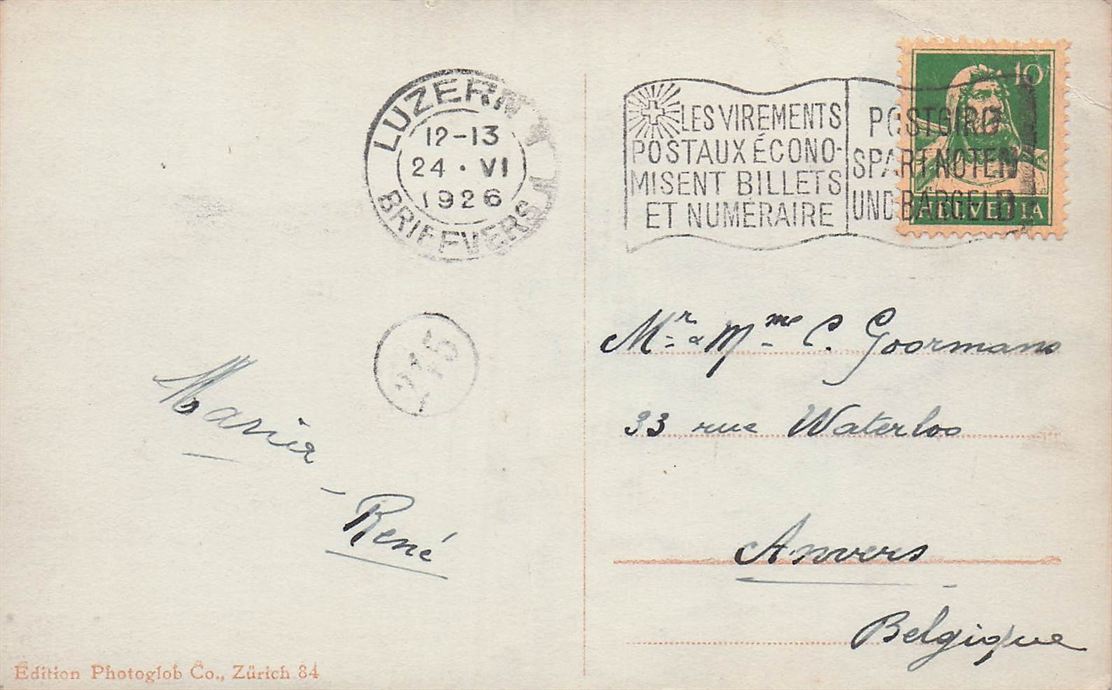 LUZERN
12-13
24·VI
1926
BRIEFVERS.
LES VIREMENTS
POSTAUX ÉCONO-
MISENT BILLETS
ET NUMÉRAIRE
POSTGIRO
SPART NOTEN
UND BARGELD
10
HELVETIA
Mr & Mme C. Goormans
33 rue Waterloo
Anvers
Belgique
Maria -
René
Edition Photoglob Co., Zürich 84